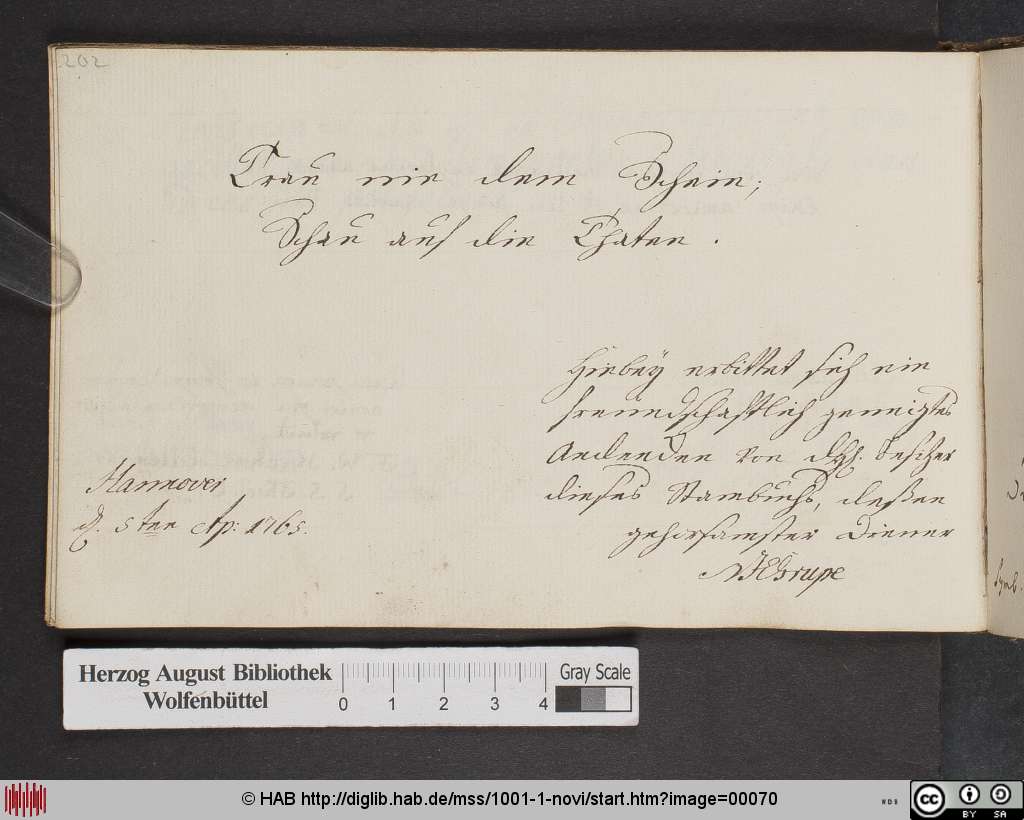 202
Trau nie dem Schein;
Schau auf die Thaten.
Hiebey erbittet sich ein
freundschaftlich geneigtes
Andencken von dem H. Besitzer
dieses Stambuchs, deßen
gehorsamster Diener
Grupe
Hannover
d. 5ten Ap: 1765.
Symb.
Herzog August Bibliothek
Wolfenbüttel
0 1 2 3 4
Gray Scale
© HAB http://diglib.hab.de/mss/1001-1-novi/start.htm?image=00070
WDB
cc BY SA